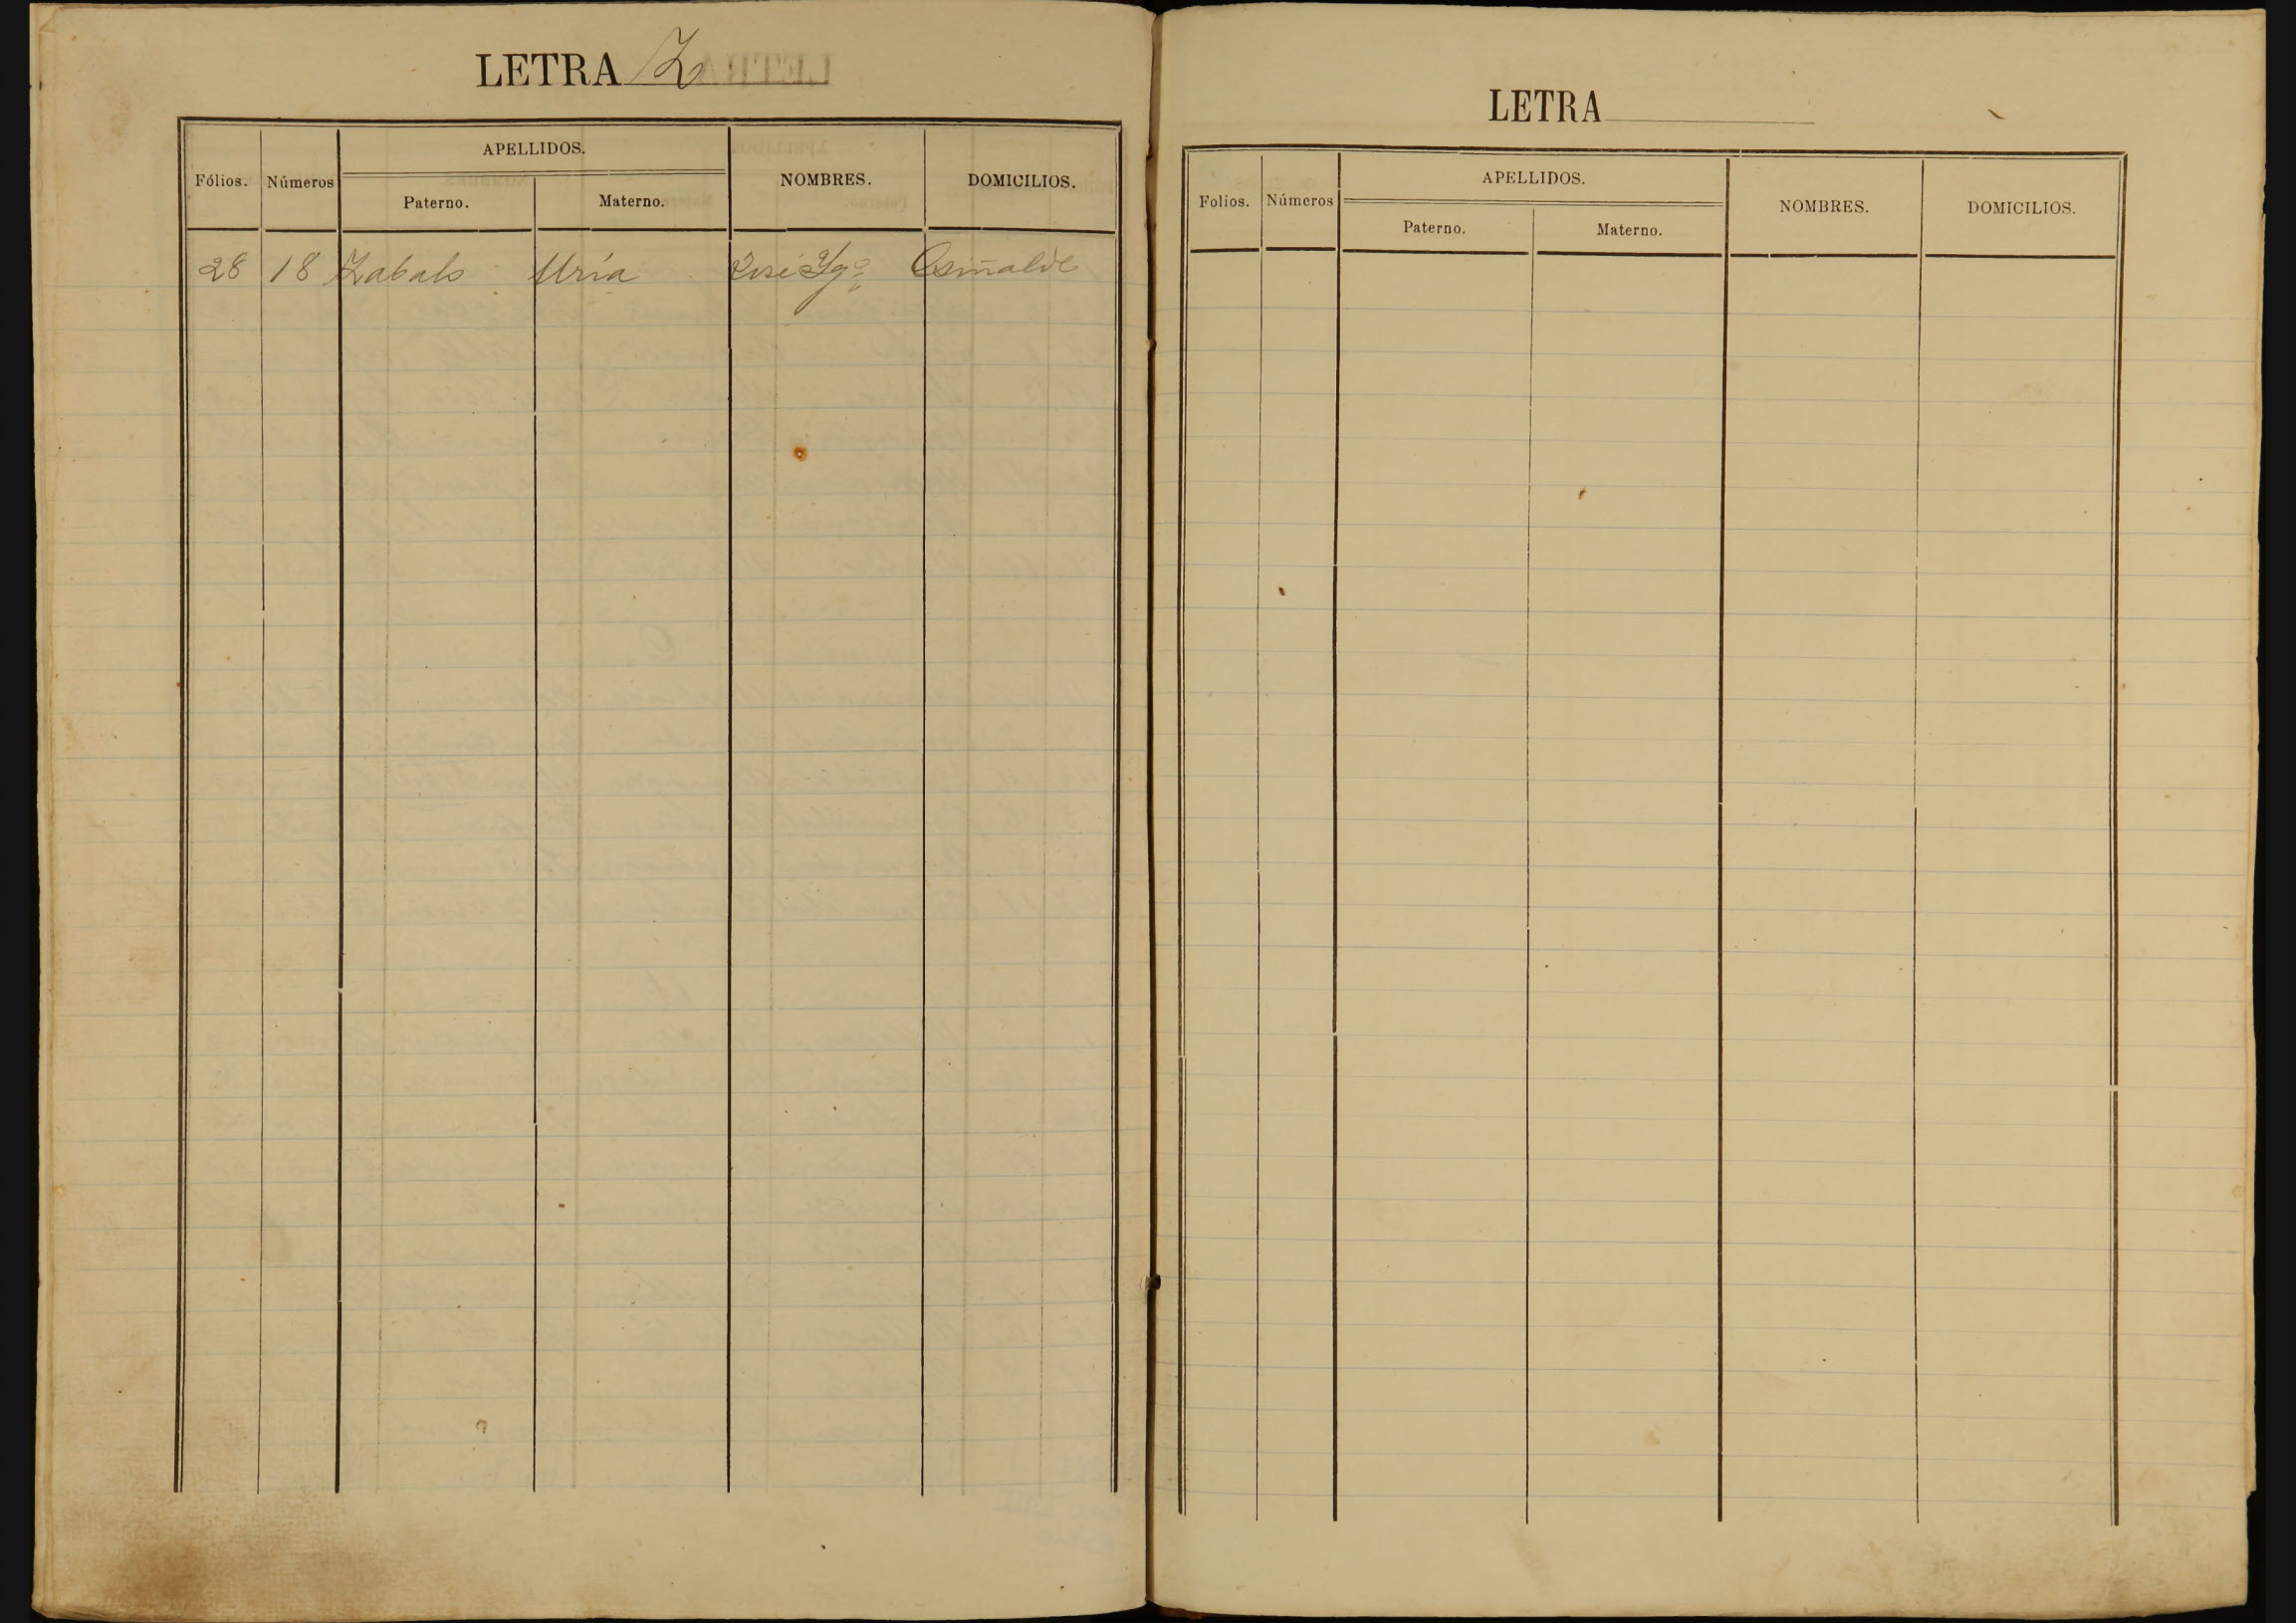 LETRA Z
Fólios. Números APELLIDOS. NOMBRES. DOMICILIOS.
Paterno. Materno.
28 18 Zabalo Uría José Igº
LETRA
Folios. Números APELLIDOS. NOMBRES. DOMICILIOS.
Paterno. Materno.